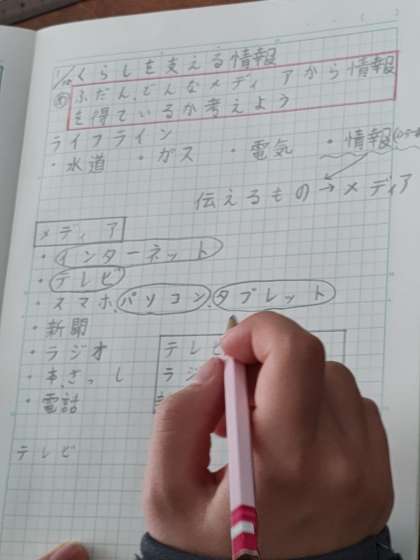 くらしを支える情報
め ふだん、どんなメディアから情報
を得ているか考えよう
ライフライン
・水道 ・ガス ・電気 ・情報
伝えるもの→メディア
メディア
・インターネット
・テレビ
・スマホ、パソコン、タブレット
・新聞
・ラジオ
・本、ざっし
・電話
テレビ
ラジ
テレビ